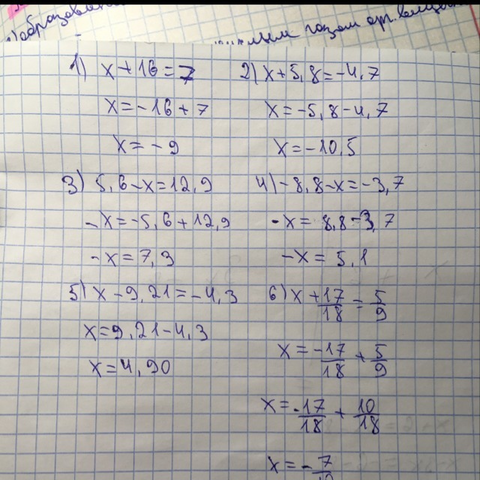 1) x+16=7
x=-16+7
x=-9
2) x+5,8=-4,7
x=-5,8-4,7
x=-10,5
3) 5,6-x=12,9
-x=-5,6+12,9
-x=7,3
4) -8,8-x=-3,7
-x=8,8-3,7
-x=5,1
5) x-9,21=-4,3
x=9,21-4,3
x=4,90
6) x+17/18=5/9
x=-17/18+5/9
x=-17/18+10/18
x=-7/18